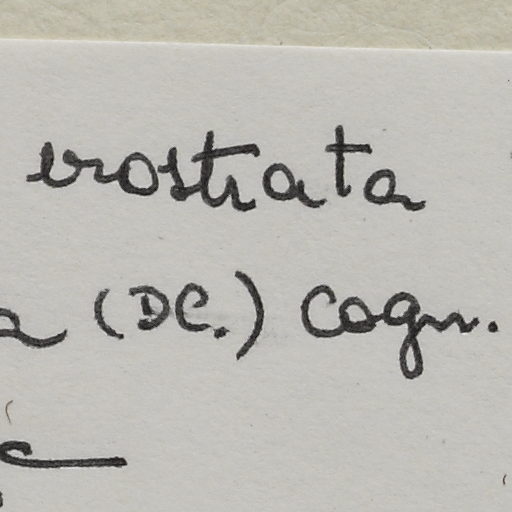 erostrata
a (DC.) Cogn.